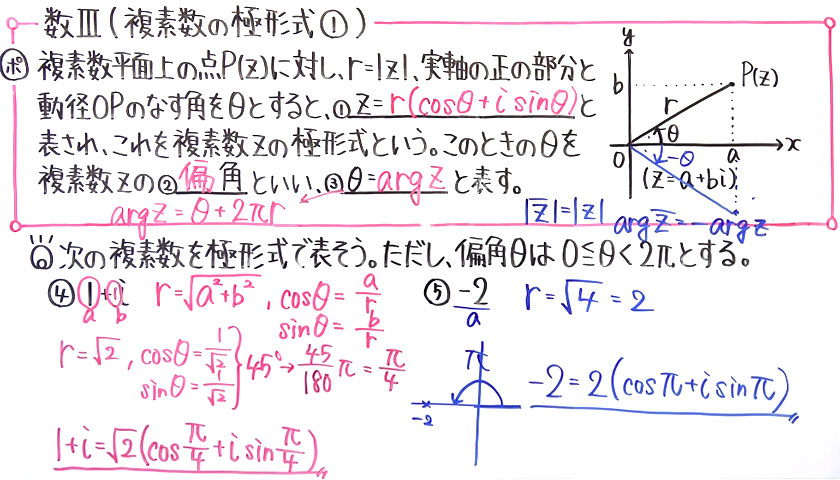 数Ⅲ(複素数の極形式①)
ポ 複素数平面上の点P(z)に対し、r=|z|、実軸の正の部分と
動径OPのなす角をθとすると、①z=r(cosθ+i sinθ)と
表され、これを複素数zの極形式という。このときのθを
複素数zの②偏角といい、③θ=arg zと表す。
arg z=θ+2πr
|z̅|=|z|
arg z̅=-arg z
y
b
P(z)
r
θ
-θ
O
a
x
(z=a+bi)
次の複素数を極形式で表そう。ただし、偏角θは0≦θ<2πとする。
④ 1+i
a b
r=√(a²+b²), cosθ=a/r
sinθ=b/r
r=√2, cosθ=1/√2
sinθ=1/√2
} 45°→45/180 π=π/4
1+i=√2(cos π/4+i sin π/4)
⑤ -2
a
r=√4=2
π
-2
-2=2(cosπ+i sinπ)